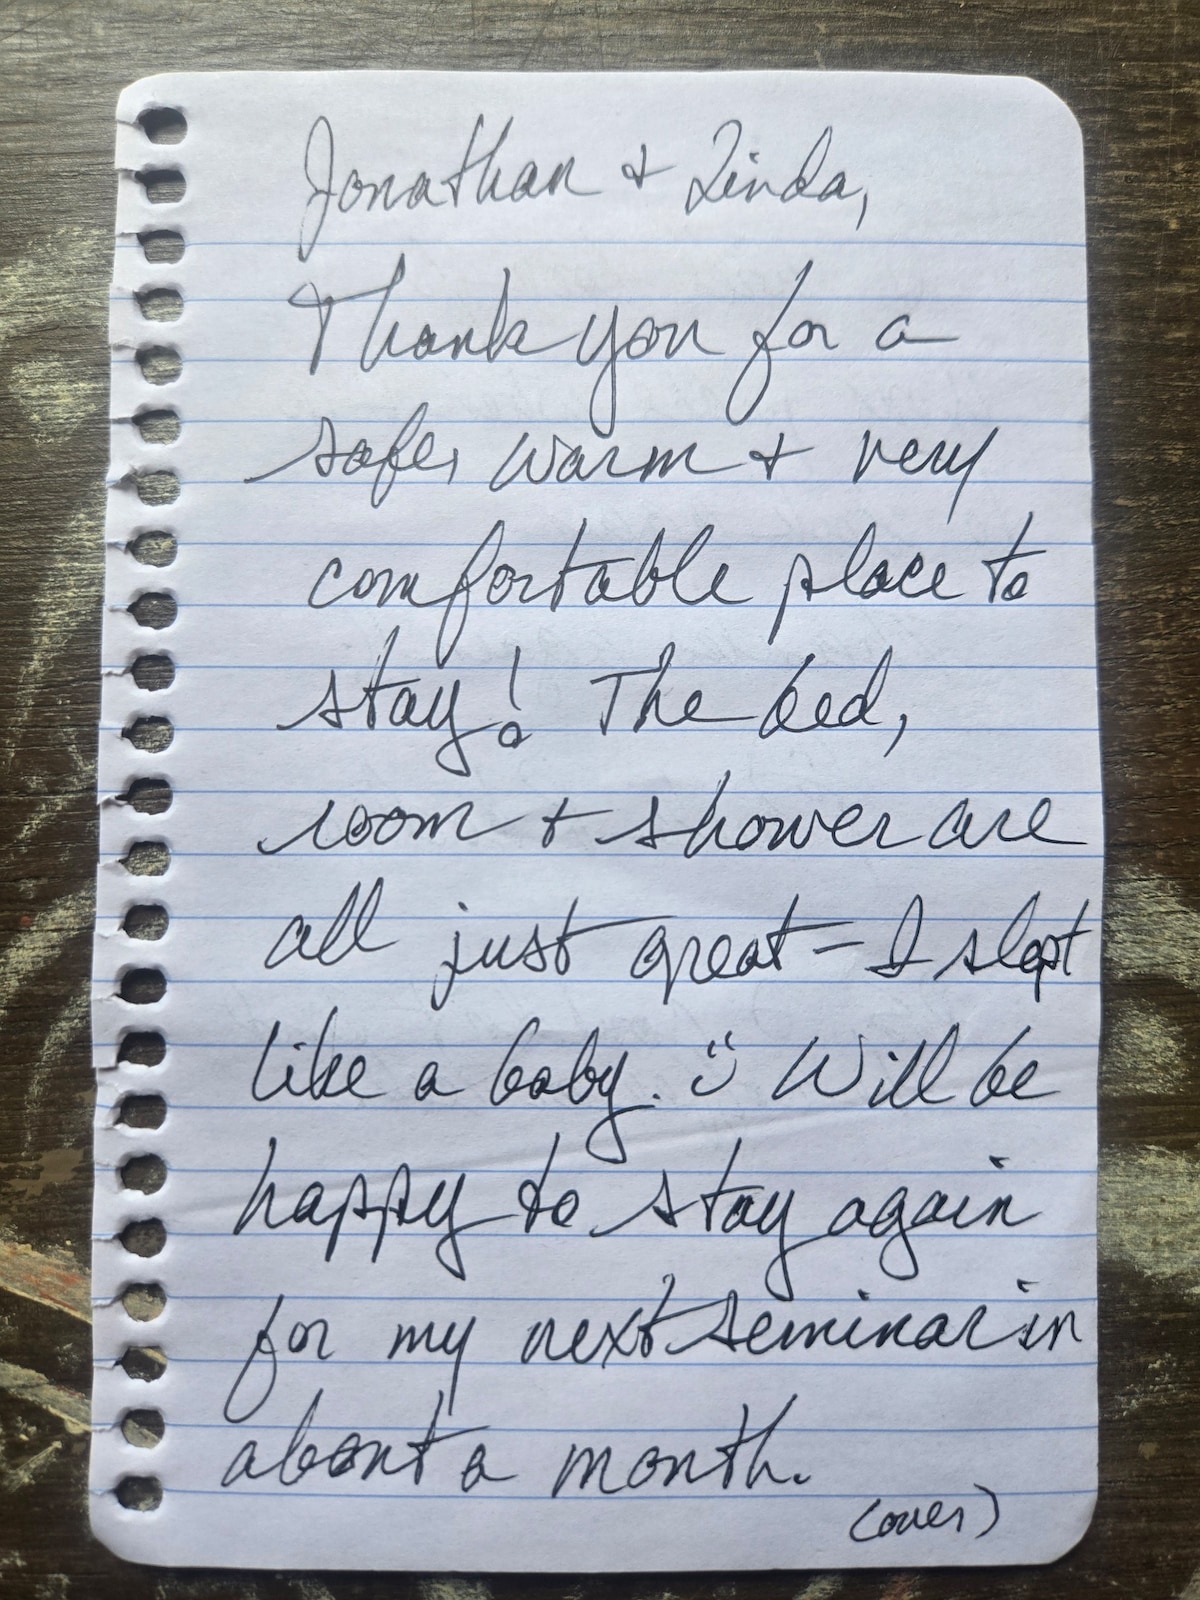 Jonathan + Linda,
Thank you for a
safe, warm + very
comfortable place to
stay! The bed,
room + shower are
all just great – I slept
like a baby. ü Will be
happy to stay again
for my next seminar in
about a month.
(over)